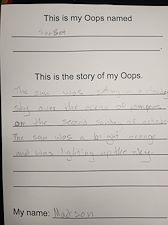 This is my Oops named
Sunset
This is the story of my Oops.
The sun was
sky over the ocean of
on the second sunday of october
The sun was a bright orange
and was lighting up the sky.
My name: Madison